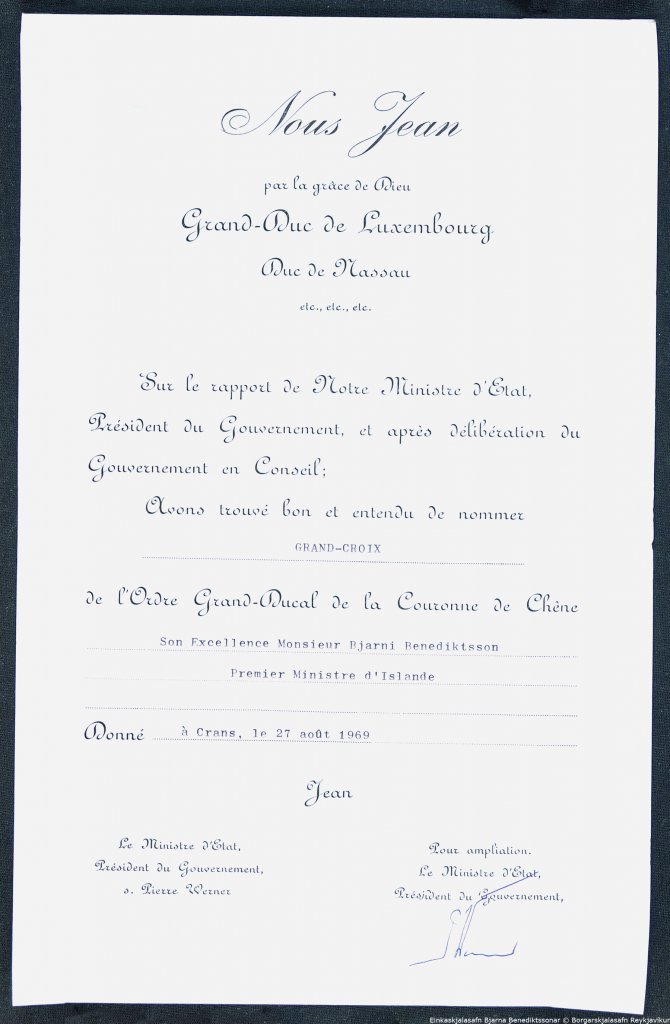 Nous Jean
par la grâce de Dieu
Grand-Duc de Luxembourg
Duc de Nassau
etc., etc., etc.
Sur le rapport de Notre Ministre d'Etat,
Président du Gouvernement, et après délibération du
Gouvernement en Conseil;
Avons trouvé bon et entendu de nommer
GRAND-CROIX
de l'Ordre Grand-Ducal de la Couronne de Chêne
Son Excellence Monsieur Bjarni Benediktsson
Premier Ministre d'Islande
Donné à Crans, le 27 août 1969
Jean
Le Ministre d'Etat,
Président du Gouvernement,
s. Pierre Werner
Pour ampliation.
Le Ministre d'Etat,
Président du Gouvernement,
Einkaskjalasafn Bjarna Benediktssonar © Borgarskjalasafn Reykjavíkur